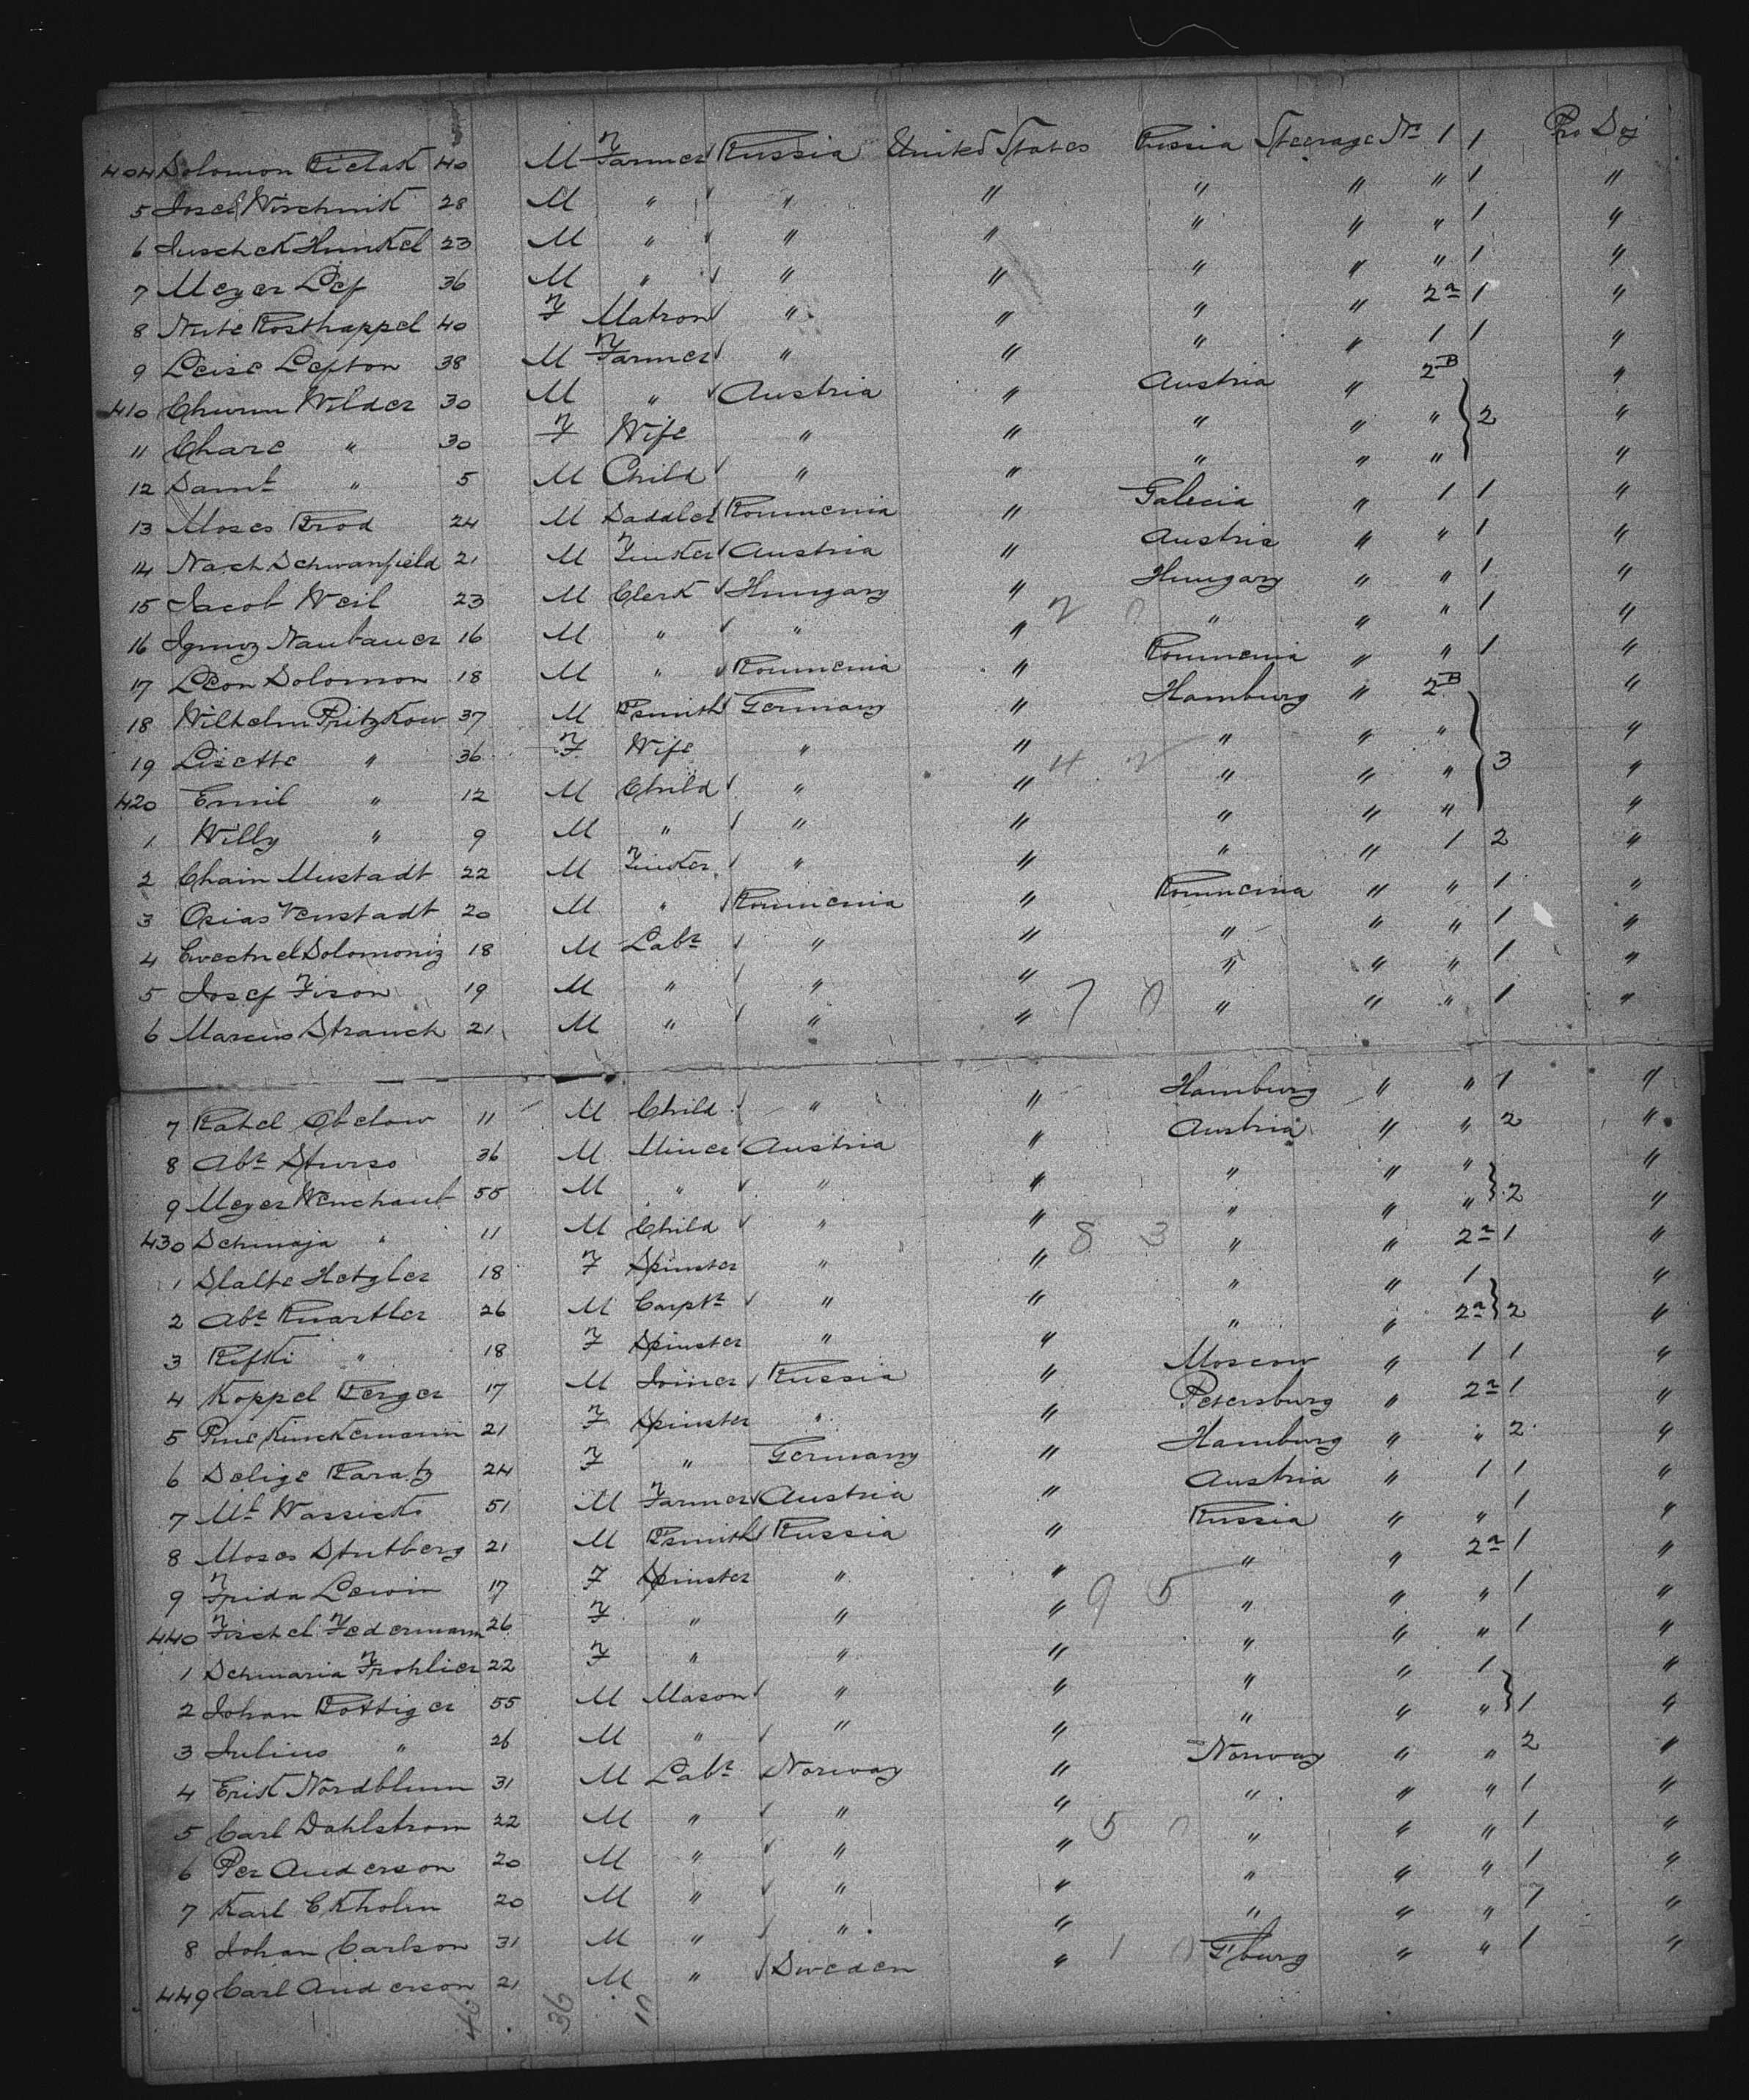 404 Solomon Bielak 40 M Farmer Russia United States Russia Steerage No 1 1 Pro Soj
5 Josel Wischnik 28 M " " " " " " 1 "
6 Juschek Hunkel 23 M " " " " " " 1 "
7 Meyer Lef 36 M " " " " " " 1 "
8 Nute Rosthappel 40 F Matron " " " " 2a 1 "
9 Leise Lefton 38 M Farmer " " " " 1 1 "
410 Churm Wilder 30 M " Austria " Austria " 2B "
11 Chare " 30 F Wife " " " " " 2 "
12 Saml " 5 M Child " " " " " "
13 Moses Brod 24 M Saddler Roumenia " Galecia " 1 1 "
14 Nach Schwanfield 21 M Tinker Austria " Austria " " 1 "
15 Jacob Weil 23 M Clerk Hungary " Hungary " " 1 "
16 Ignoz Naubauer 16 M " " " " " " 1 "
17 Leon Solomon 18 M " Roumenia " Roumenia " " 1 "
18 Wilhelm Pritzkow 37 M Bsmith Germany " Hamburg " 2B "
19 Lisette " 36 F Wife " " " " " "
420 Emil " 12 M Child " " " " " 3 "
1 Willy " 9 M " " " " " " "
2 Chain Mustadt 22 M Tinker " " " " 1 2 "
3 Osias Venstadt 20 M " Roumenia " Roumenia " " 1 "
4 Solomoniz 18 M Labr " " " " " 1 "
5 Josef Fison 19 M " " " " " " 1 "
6 Marcus Strauch 21 M " " " " " " 1 "
7 Ratel Obelow 11 M Child " " Hamburg " " 1 "
8 Abr Sturso 36 M Miner Austria " Austria " " 2 "
9 Meyer Wenchaut 55 M " " " " " " "
430 Schmaja " 11 M Child " " " " " 2 "
1 Slalte Hetzler 18 F Spinster " " " " 2a 1 "
2 Abr Quartler 26 M Carptr " " " " 1 "
3 Rifki " 18 F Spinster " " " " 2a 2 "
4 Koppel Berger 17 M Joiner Russia " Moscow " 1 1 "
5 Kinckermann 21 F Spinster " " Petersburg " 2a 1 "
6 Selige Baratz 24 F " Germany " Hamburg " " 2 "
7 Ml Wassicko 51 M Farmer Austria " Austria " 1 1 "
8 Moses Stutberg 21 M Bsmith Russia " Russia " " 1 "
9 Frida Lewin 17 F Spinster " " " " 2a 1 "
440 Fischel Federmann 26 F " " " " " " 1 "
1 Schmaria Frohlier 22 F " " " " " " 1 "
2 Johan Bottiger 55 M Mason " " " " 1 "
3 Julius " 26 M " " " " " " 1 "
4 Erik Nordblum 31 M Labr Norway " Norway " " 2 "
5 Carl Dahlstrom 22 M " " " " " " 1 "
6 Per Anderson 20 M " " " " " " 1 "
7 Karl Ekholm 20 M " " " " " " 1 "
8 Johan Carlson 31 M " " " " " " 1 "
449 Carl Anderson 21 M " Sweden " G'burg " " 1 "
46 36 10